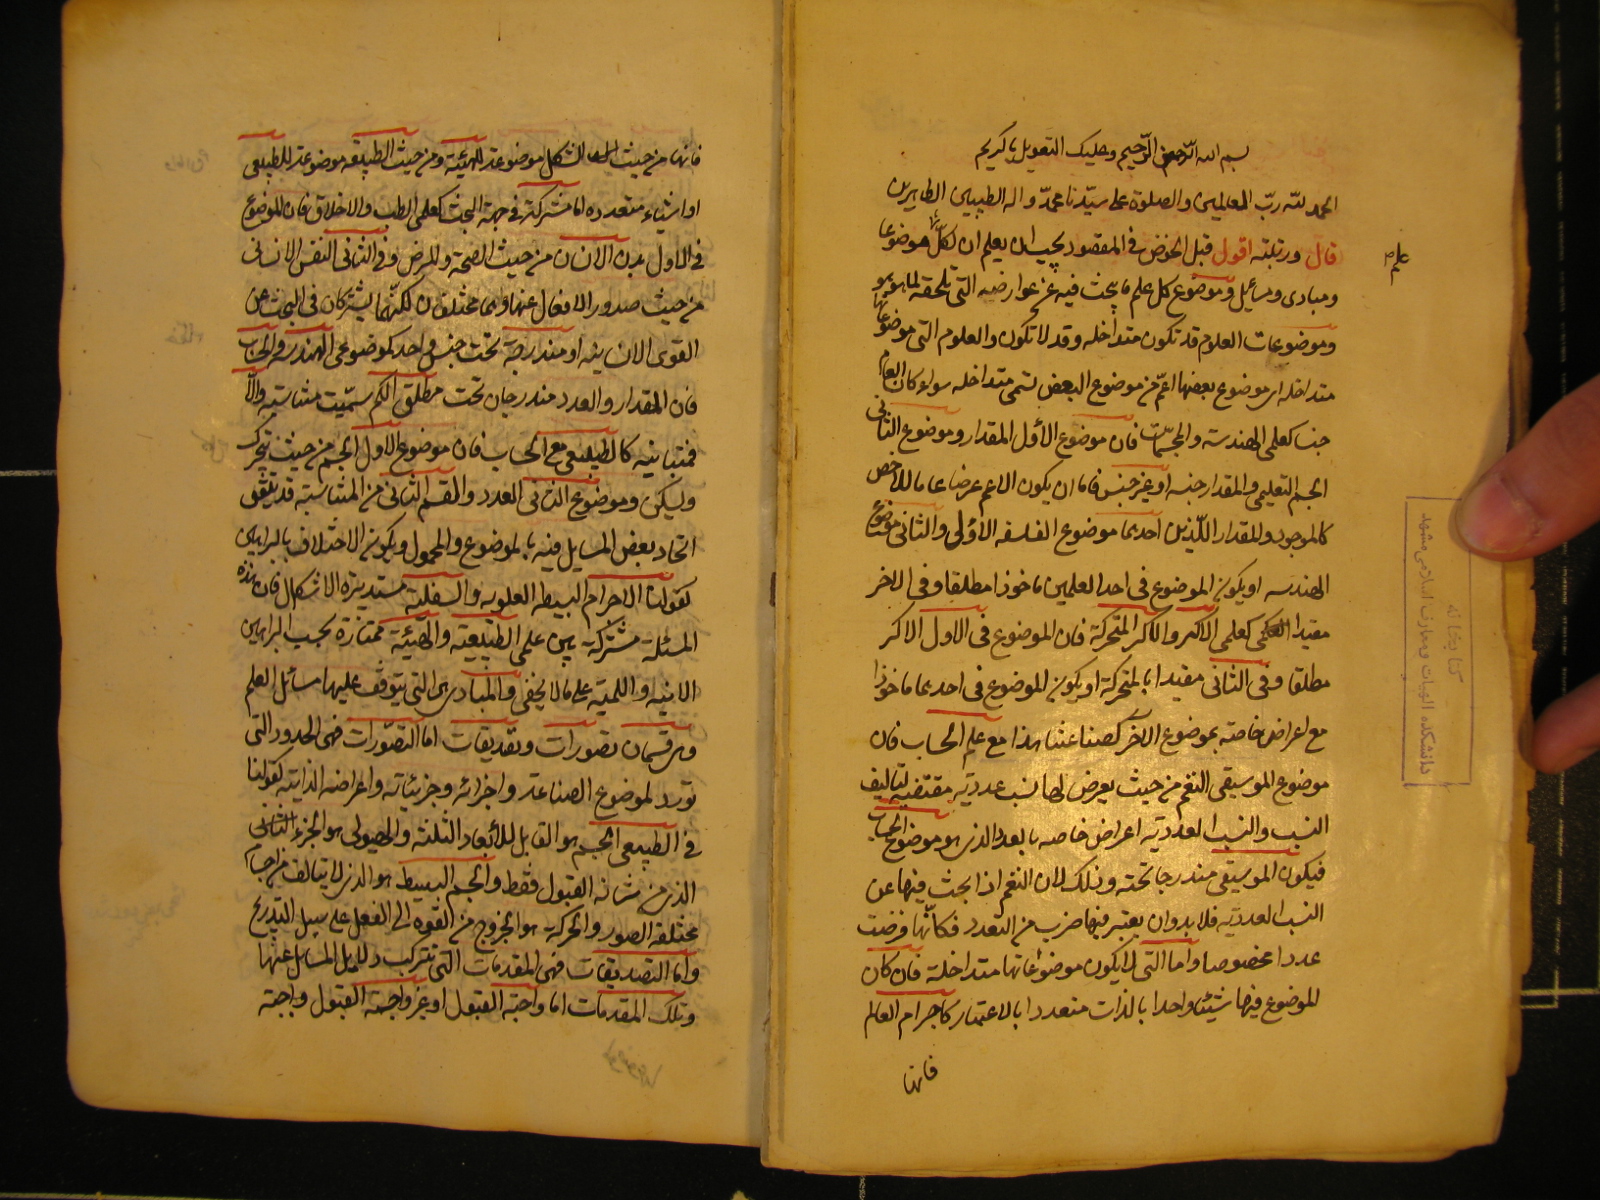 بسم الله الرحمن الرحيم وعليك التعويل يا كريم
الحمد لله رب العالمين والصلوة على سيدنا محمد واله الطيبين الطاهرين
قال ورتبته اقول قبل الخوض فى المقصود يجب ان يعلم ان لكل علم موضوعا
ومبادى ومسائل وموضوع كل علم ما يبحث فيه عن عوارضه التى تلحقه لما هو هو
وموضوعات العلوم قد تكون متداخله وقد لا تكون والعلوم التى موضوعاتها
متداخله اى موضوع بعضها اعم من موضوع البعض تسمى متداخله سواء كان العام
جنسا كعلمى الهندسة والمجسمات فان موضوع الاول المقدار وموضوع الثانى
الجسم التعليمى والمقدار جنسه او غير جنس فاما ان يكون الاعم عرضا عاما للاخص
كالموجود والمقدار اللذين احدهما موضوع الفلسفه الاولى والثانى موضوع
الهندسه او يكون الموضوع فى احد العلمين ماخوذا مطلقا وفى الاخر
مقيدا كعلمى الاكر والاكر المتحركة فان الموضوع فى الاول الاكر
مطلقا وفى الثانى مقيدا بالمتحركة او يكون الموضوع فى احدهما ماخوذا
مع اعراض خاصة بموضوع الاخر كصناعتنا هذا مع علم الحساب فان
موضوع الموسيقى النغم من حيث يعرض لها نسب عددية مقتضية لتاليف
النسب والنسب العددية اعراض خاصه بالعدد الذى هو موضوع الحساب
فيكون الموسيقى مندرجا تحته وذلك لان النغم اذا بحث فيها عن
النسب العددية فلا بد وان يعتبر فيها ضرب من التعدد فكأنها فرضت
عددا مخصوصا واما التى لا يكون موضوعاتها متداخلة فان كان
الموضوع فيها شيئا واحدا بالذات متعددا بالاعتبار كاجرام العالم
فانها
كتابخانه
دانشكده الهيات ومعارف اسلامى مشهد
فانها من حيث الشكل موضوعة للهيئة ومن حيث الطبيعة موضوعة للطبيعى
او اشياء متعدده اما مشتركة فى جهة البحث كعلمى الطب والاخلاق فان الموضوع
فى الاول بدن الانسان من حيث الصحة والمرض وفى الثانى النفس الانسانى
من حيث صدور الافعال عنها وهما مختلفان لكنهما يشتركان فى البحث عن
القوى الانسانيه او مندرجة تحت جنس واحد كموضوعى الهندسة والحساب
فان المقدار والعدد مندرجان تحت مطلق الكم سميت متناسبه والا
فمتباينه كالطبيعى مع الحساب فان موضوع الاول الجسم من حيث يتحرك
ويسكن وموضوع الثانى العدد والقسم الثانى من المتناسبة قد يتفق
اتحاد بعض المسايل فيه بالموضوع والمحمول ويكون الاختلاف بالبراهين
كقولنا الاجرام البسيطه العلويه والسفليه مستديرة الاشكال فان هذه
المسئلة مشتركة بين علمى الطبيعية والهيئة ممتازة بحسب البراهين
الانيه واللمية على ما لا يخفى والمبادى هى التى يتوقف عليها مسائل العلم
وهى قسمان تصورات وتصديقات اما التصورات فهى الحدود التى
تورد لموضوع الصناعة واجزائه وجزئياته واعراضه الذاتيه كقولنا
فى الطبيعى الجسم هو القابل للابعاد الثلثة والهيولى هو الجزء الثانى
الذى من شانه القبول فقط والجسم البسيط هو الذى لا يتالف من اجسام
مختلفه الصور والحركة هو الخروج من القوة الى الفعل على سبيل التدريج
واما التصديقات فهى المقدمات التى تتركب دلايل المسائل عنها
وتلك المقدمات اما واجبة القبول او غير واجبة القبول وواجبة